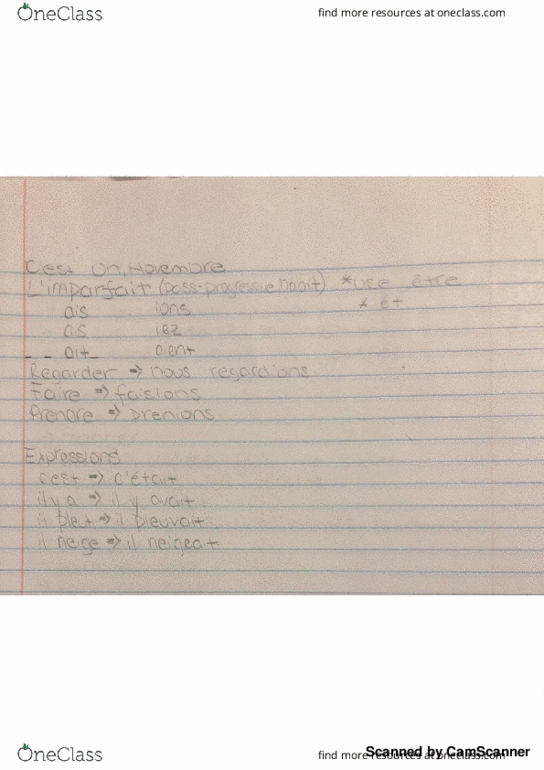 OneClass
find more resources at oneclass.com
C'est un, Novembre
L'imparfait (pass-progressive, habit) *use être
ais ions * ét
ais iez
ait aient
Regarder => nous regardions
Faire => faisions
Prendre => prenions
Expressions
c'est => c'était
il y a => il y avait
il pleut => il pleuvait
il neige => il neigeait
OneClass
find more resources at oneclass.com
Scanned by CamScanner